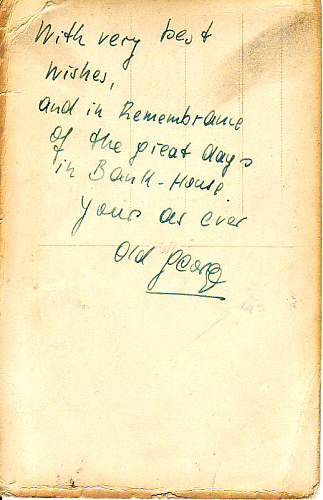 With very best
wishes,
and in Remembrance
of the great days
in Bank-House
yours as ever
old Georg